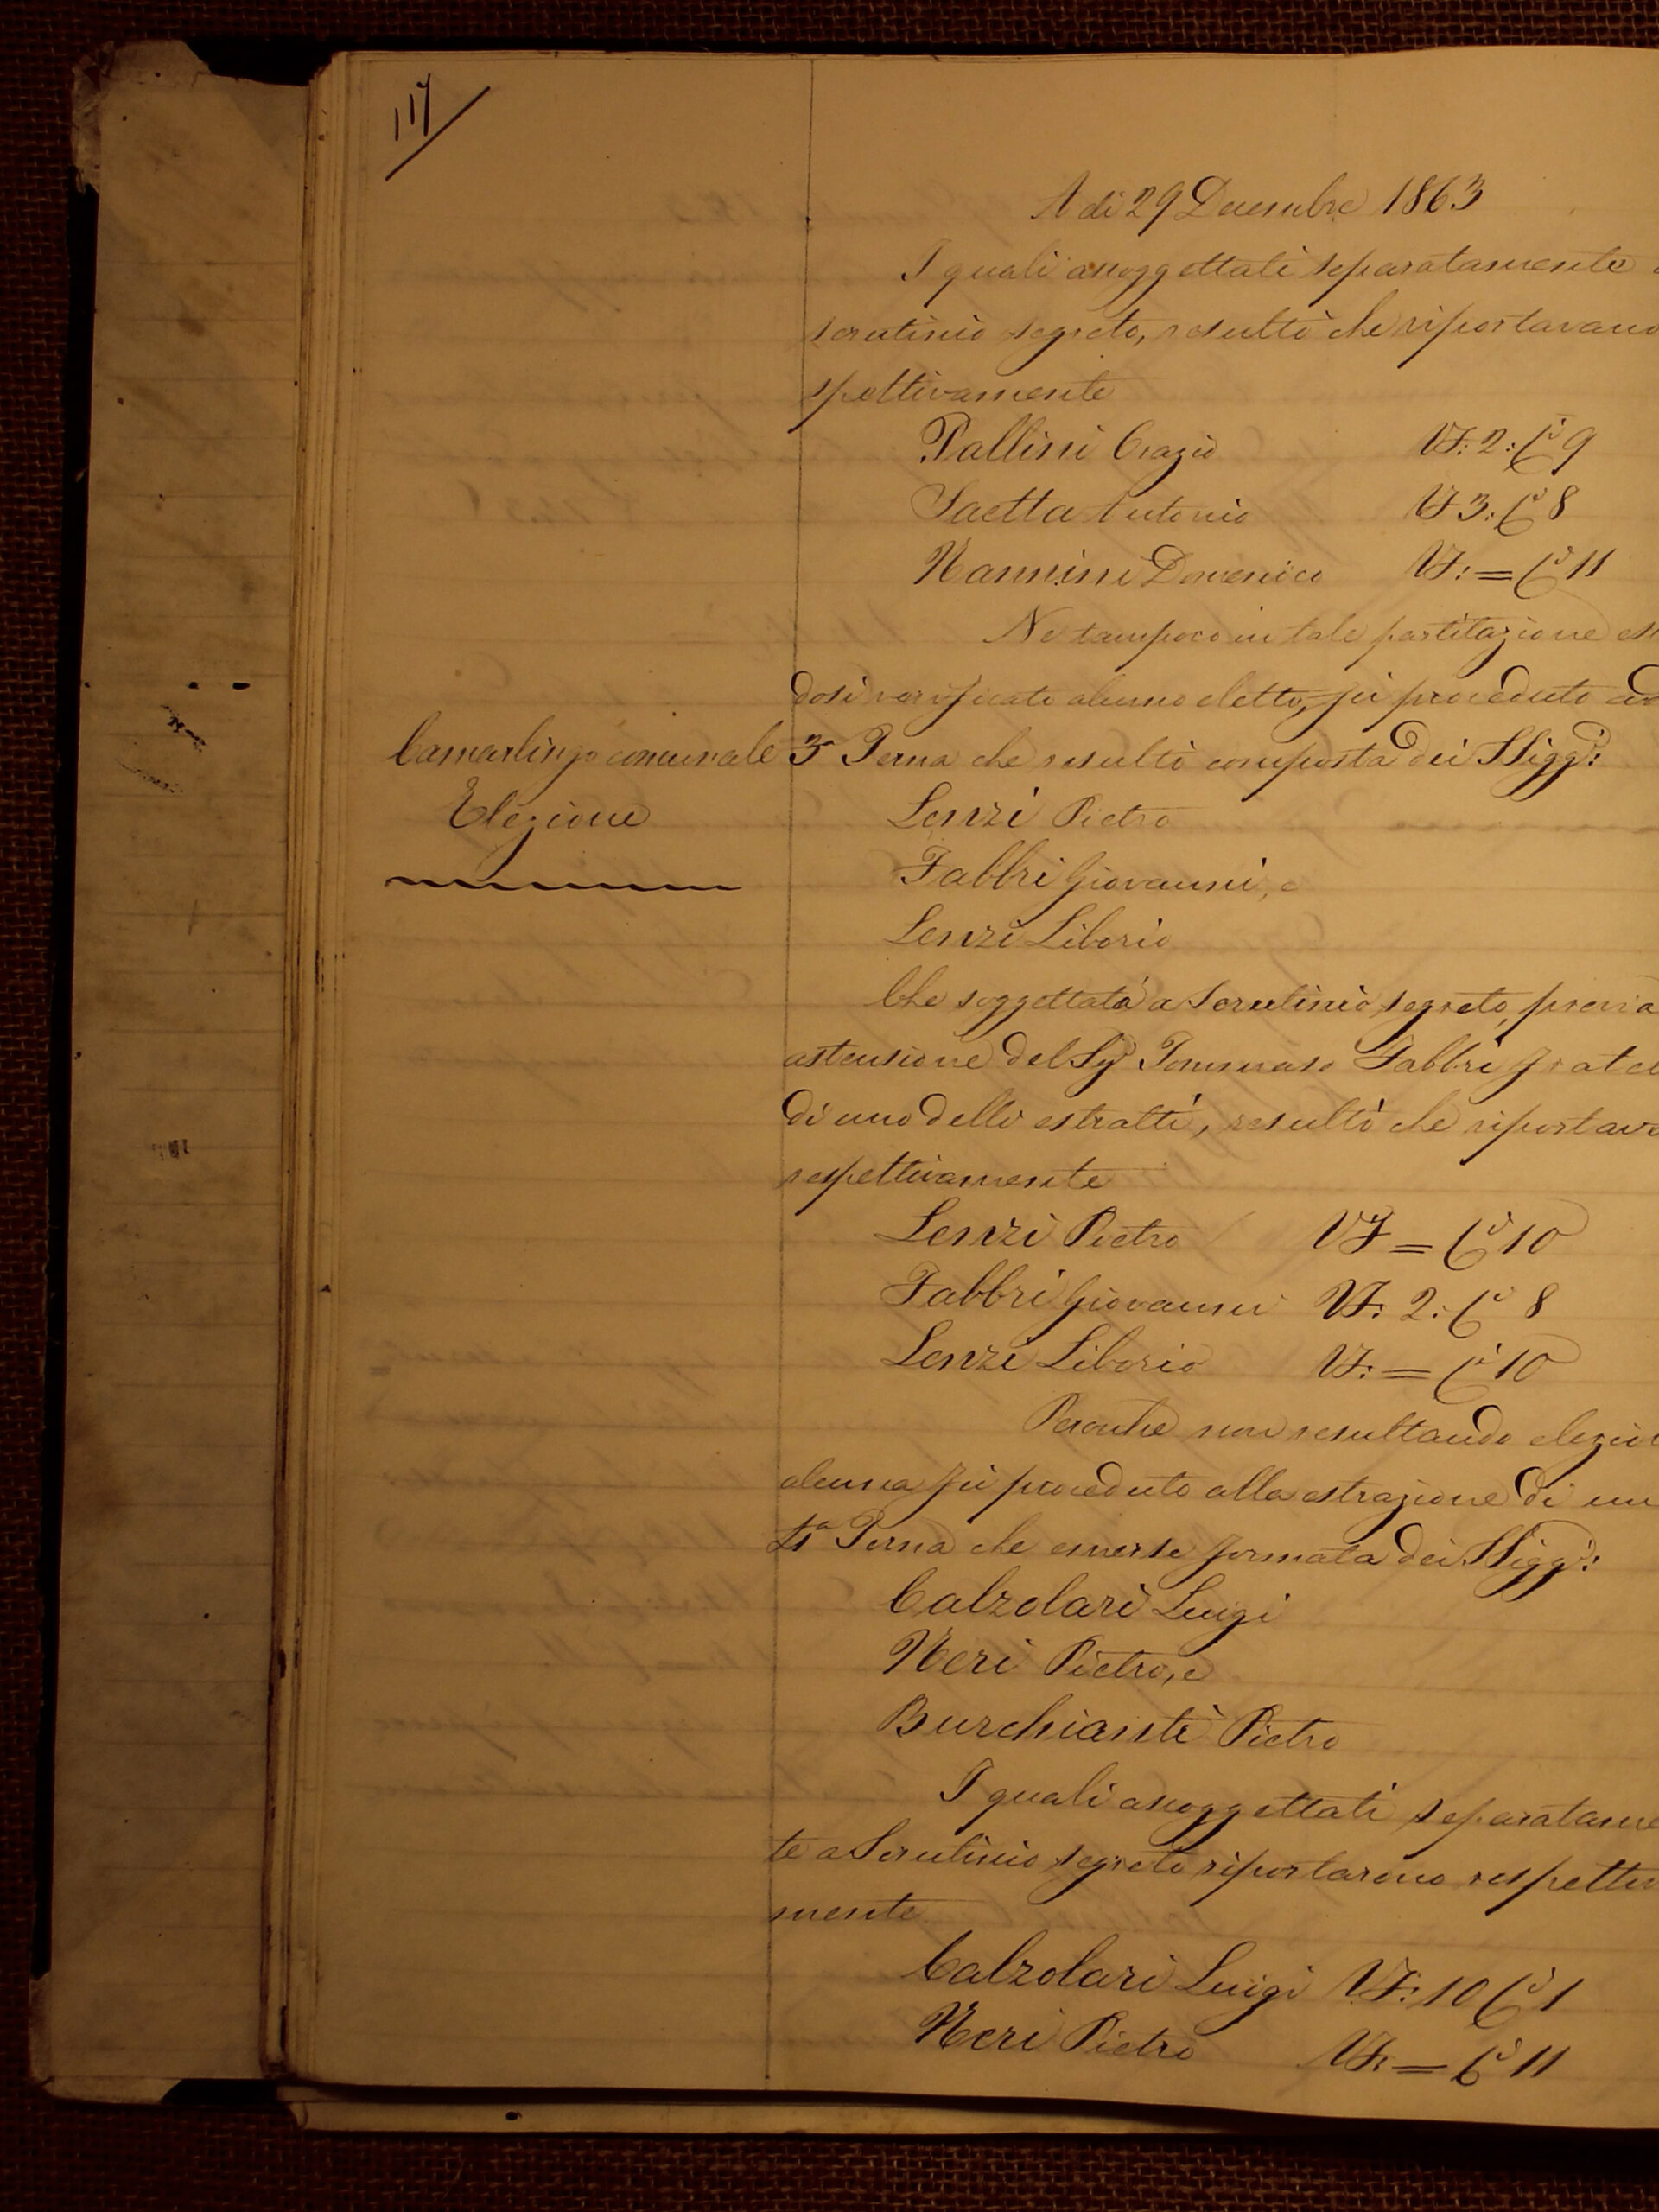 117
A dì 29 Decembre 1863
I quali assoggettati separatamente
scrutinio segreto, resultò che riportavano
spettivamente
Pallini Orazio VF: 2: Ci 9
Saetta Antonio VF 3: Ci 8
Nannini Domenico VF: = Ci 11
Ne tampoco in tale partitazione es
dosi verificato alcuno eletto, fu proceduto ad
Camarlingo comunale
Elezione
3a Terna che resultò composta dei SSigg:i
Lenzi Pietro
Fabbri Giovanni, e
Lenzi Liborio
Che soggettata a Scrutinio segreto, previa
astensione del Sigr Tommaso Fabbri fratel
di uno delli estratti, resultò che riportava
respettivamente
Lenzi Pietro VF = Ci 10
Fabbri Giovanni VF: 2: Ci 8
Lenzi Liborio VF: = Ci 10
Peronche non resultando elezio
alcuna fu proceduto alla estrazione di un
4a Terna che emerse formata dei SSigg:i
Calzolari Luigi
Neri Pietro, e
Burchianti Pietro
I quali assoggettati separatame
te a Scrutinio segreto riportarono respettiv
mente
Calzolari Luigi VF: 10 Ci 1
Neri Pietro VF: = Ci 11